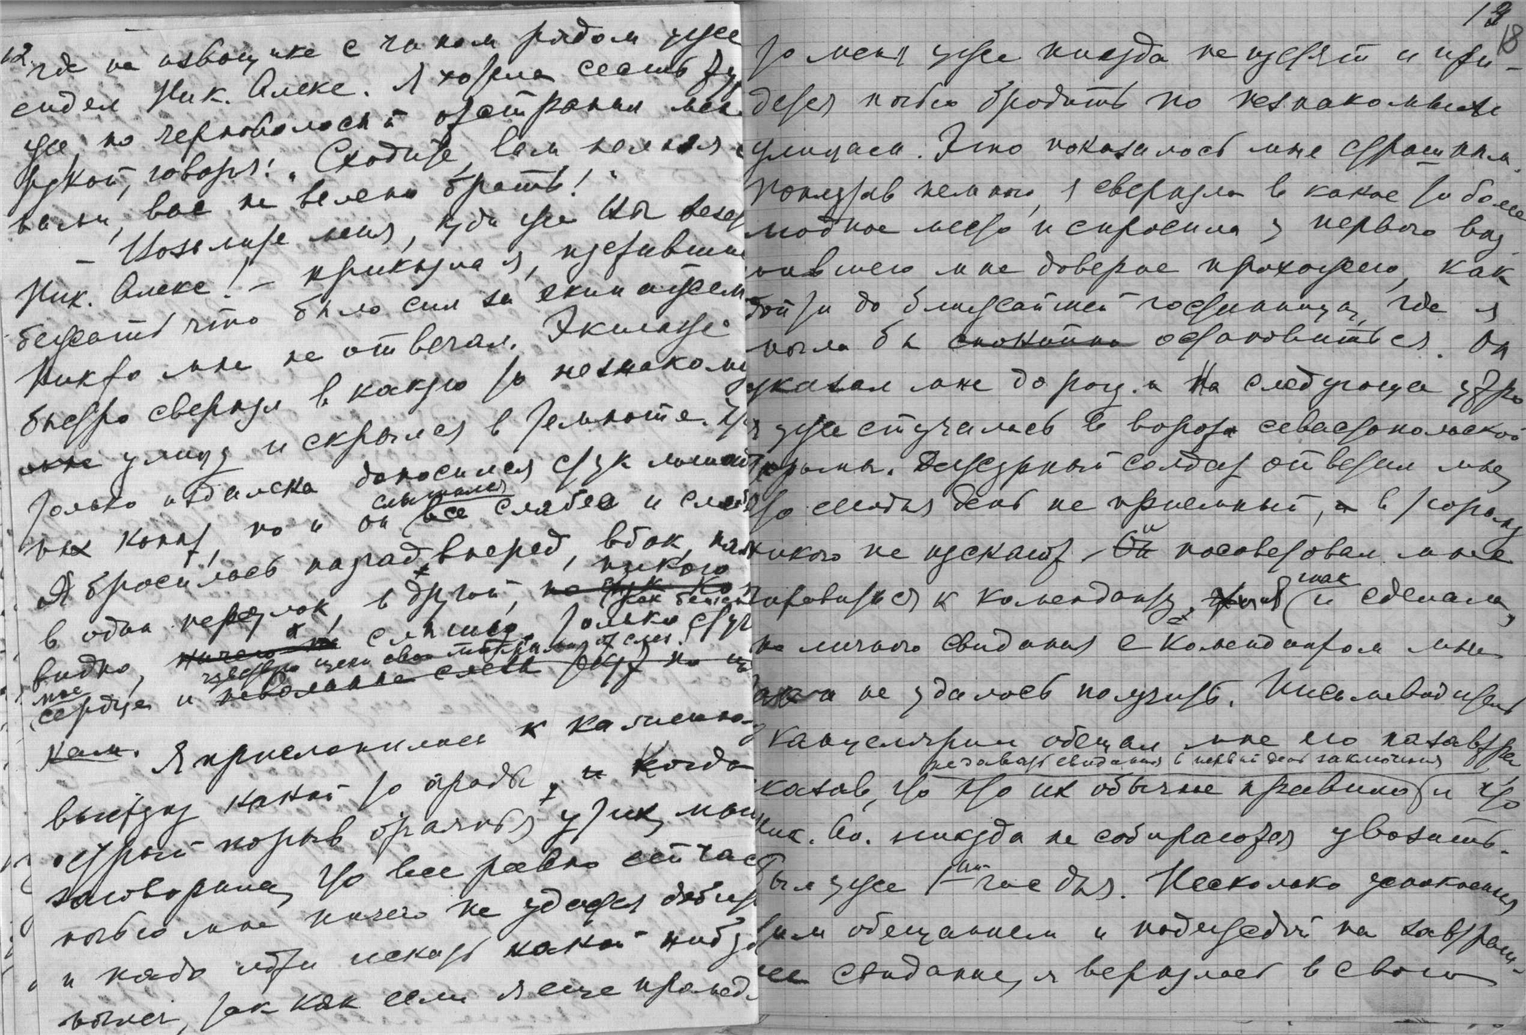 12.
где на извощике с чином рядом уже
сидел Ник. Алекс. Я хотела сесть ту
же, но черноволосый отстранил меня
рукой, говоря: "Сходите, Вам нельзя с
нами, вас не велено брать!"
— Возьмите меня, куда же Вы везете
Ник. Алекс! — крикнула я, пустившись
бежать что было сил за экипажем
Никто мне не отвечал. Экипаж
быстро свернул в какую то незнакомую
улицу и скрылся в темноте.
только издалека доносился стук
копыт, но и он слышался все слабее и слабее
Я бросилась назад, вперед, вбок,
в один переулок, в другой, никого
видно, слышно только стук
сердца и
Я прислонилась к каменному
выступу какой то ограды и когда
острый порыв отчаянья утих, мысль
заговорила, что все равно сейчас
ночью мне ничего не удастся добиться
и надо идти искать какой нибудь
ночлег, так как если я еще промедлю
19
18
то меня уже никуда не пустят и при-
дется ночью бродить по незнакомым
улицам. Это показалось мне страшным.
немного, я свернула в какое то более
людное место и спросила у первого
мне доверие прохожего, как
дойти до ближайшей гостиницы, где я
могла бы спокойно остановиться. Он
указал мне дорогу. На следующее утро
я уже стучалась в ворота севастопольской
тюрьмы. Дежурный солдат ответил мне,
что сегодня день не приемный, в тюрьму
никого не пускают и посоветовал мне
отправиться к коменданту. Я так и сделала,
но личного свидания с комендантом мне
не удалось получить. Письмоводитель
канцелярии обещал мне его назавтра
не давать свидания в первый день заключения
сказав, что это их обычное правило и что
Ник. Ал. никуда не собираются увозить.
Был уже час дня. Несколько успокоенная
этим обещанием и надеждой на завтраш-
нее свидание, я вернулась в свою